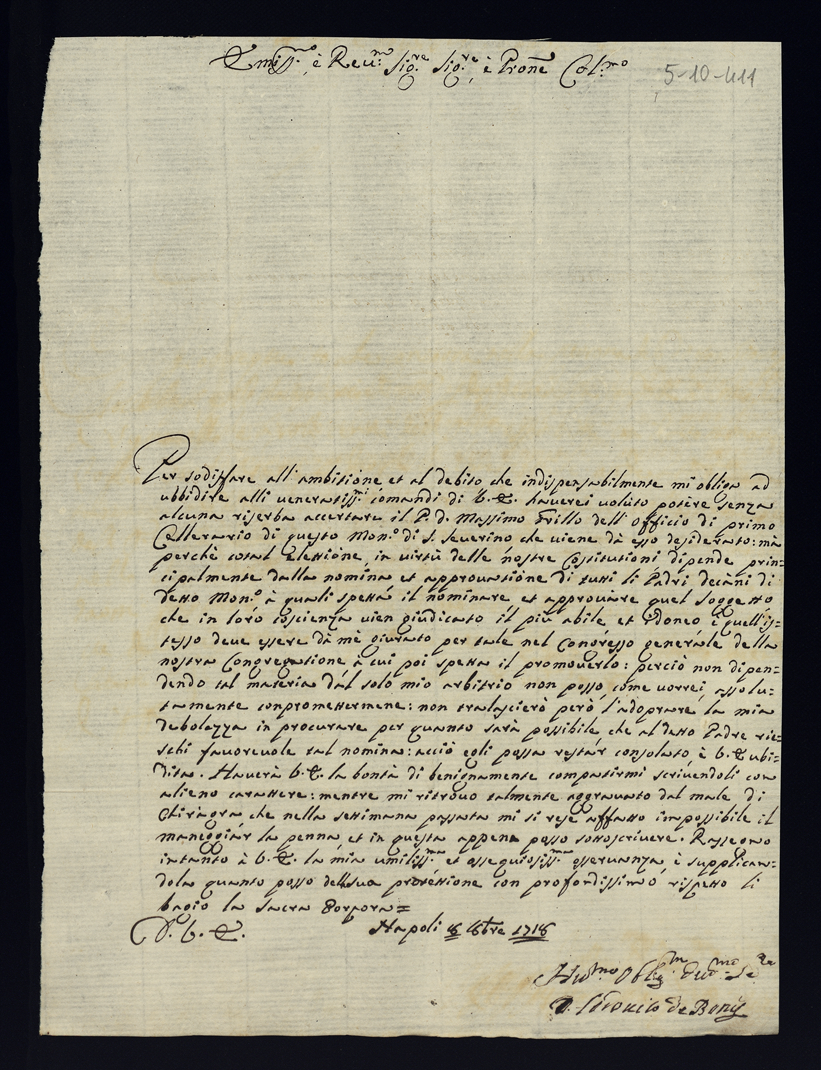 Emiss.mo è Reu.mo Sig.re Sig.re, è Prone Col.mo
5-10-411
Per sodisfare all'ambitione et al debito che indispensabilmente mi obliga ad
ubbidire alli ueneratiss.mi comandi di V.E. hauerei uoluto potere senza
alcuna riserba accertare il P.D. Massimo Frillo dell'officio di primo
Cellerario di questo Mon.o di S. Seuerino che uiene dà esso desiderato: mà
perchè cotal elettione, in uirtù delle nostre Costitutioni dipende prin=
cipalmente dalla nomina et approuatione di tutti li Padri decani di
detto Mon.o à quali spetta il nominare et approuare quel soggetto
che in loro coscienza uien giudicato il più abile et Idoneo è quell'is=
tesso deue essere dà mè giurato per tale nel Congresso generale della
nostra Congregatione à cui poi spetta il promouerlo: perciò non dipen=
dendo tal materia dal solo mio arbitrio non posso come uorrei assolu=
tamente compromettermene: non tralascierò però l'adoprare la mia
debolezza in procurare per quanto sarà possibile che al detto Padre rie=
schi fauoreuole tal nomina: acciò egli possa restar consolato è V.E. ubi=
dita. Hauerà V.E. la bontà di benignamente compatirmi scriuendoli con
alieno carattere: mentre mi ritrouo talmente aggrauato dal male di
Chiragra che nella settimana passata mi si rese affatto impossibile il
maneggiar la penna et in questa appena posso sottoscriuere. Rassegno
intanto à V.E. la mia umiliss.ma et ossequiosiss.ma osseruanza, è supplican=
dola quanto posso della sua protettione con profondissimo rispetto li
bagio la Sacra Porpora=
D. V. E. Napoli 8bre 1718
Hu.mo Oblig.mo
D. de